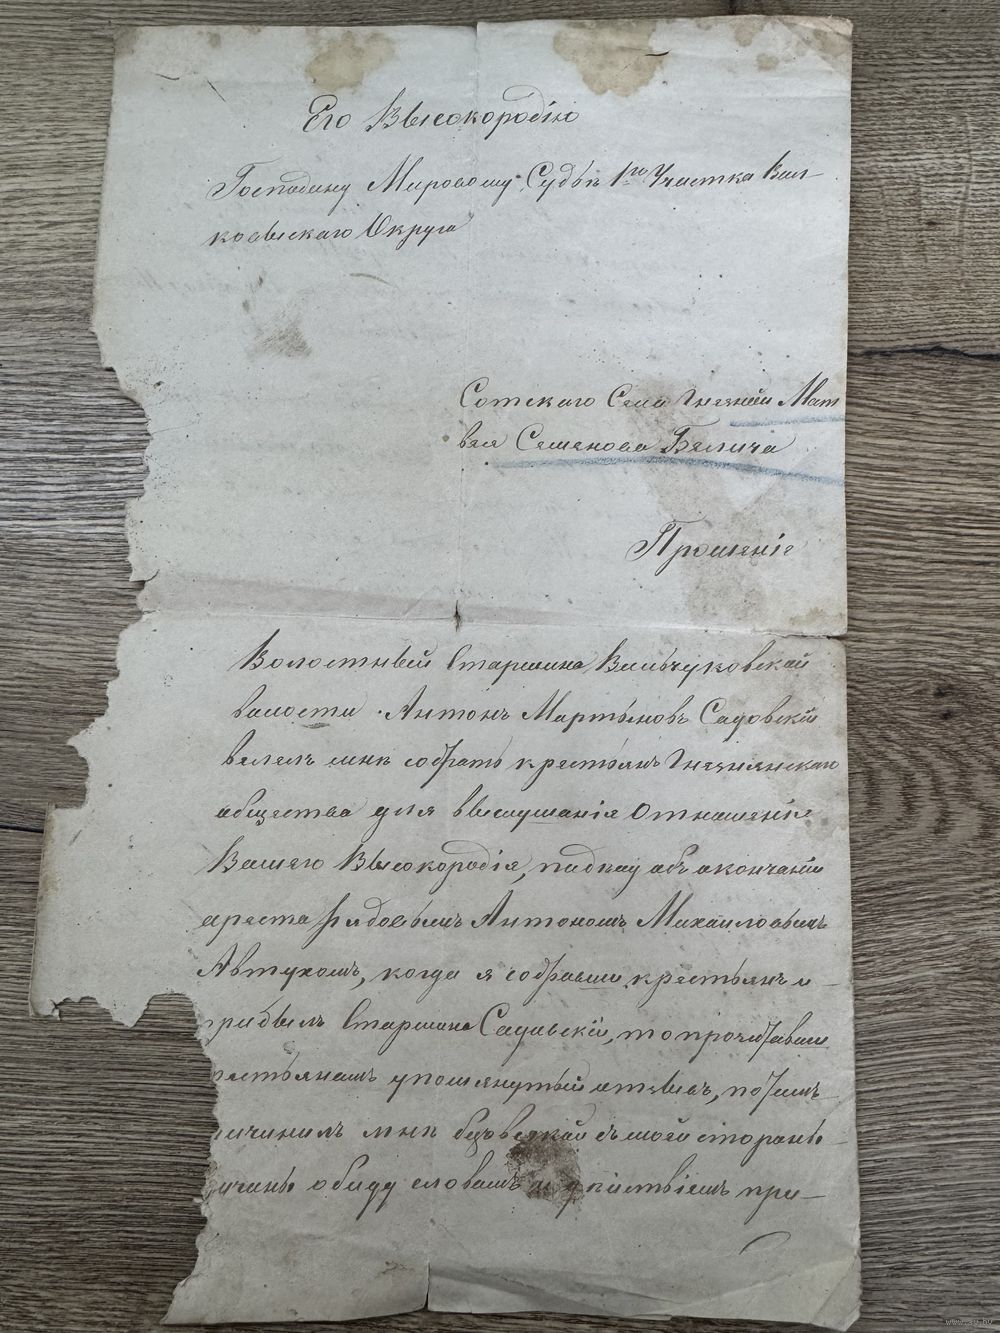 Его Высокородію
Господину Мировому Судьѣ 1го Участка Вол-
ковыскаго Округа
Сотскаго Села Гнезной Мат
вея Семенова Белича
Прошеніе
Волостный Старшина Вильчуковской
волости Антонъ Мартыновъ Садовскій
велелъ мнѣ собрать крестьянъ Гнезнянскаго
общества для выслушанія Отношеніе
Вашего Высокородія, объ окончаніи
ареста рядовымъ Антономъ Михаиловымъ
Автухомъ, когда я собравши крестьянъ и
прибылъ Старшина Садовскій, то прочитавши
рестьянамъ упомянутый отзывъ, потомъ
ичинилъ мнѣ безъвсякой съ моей стораны
ичины обиду словамъ и дѣйствіемъ при-